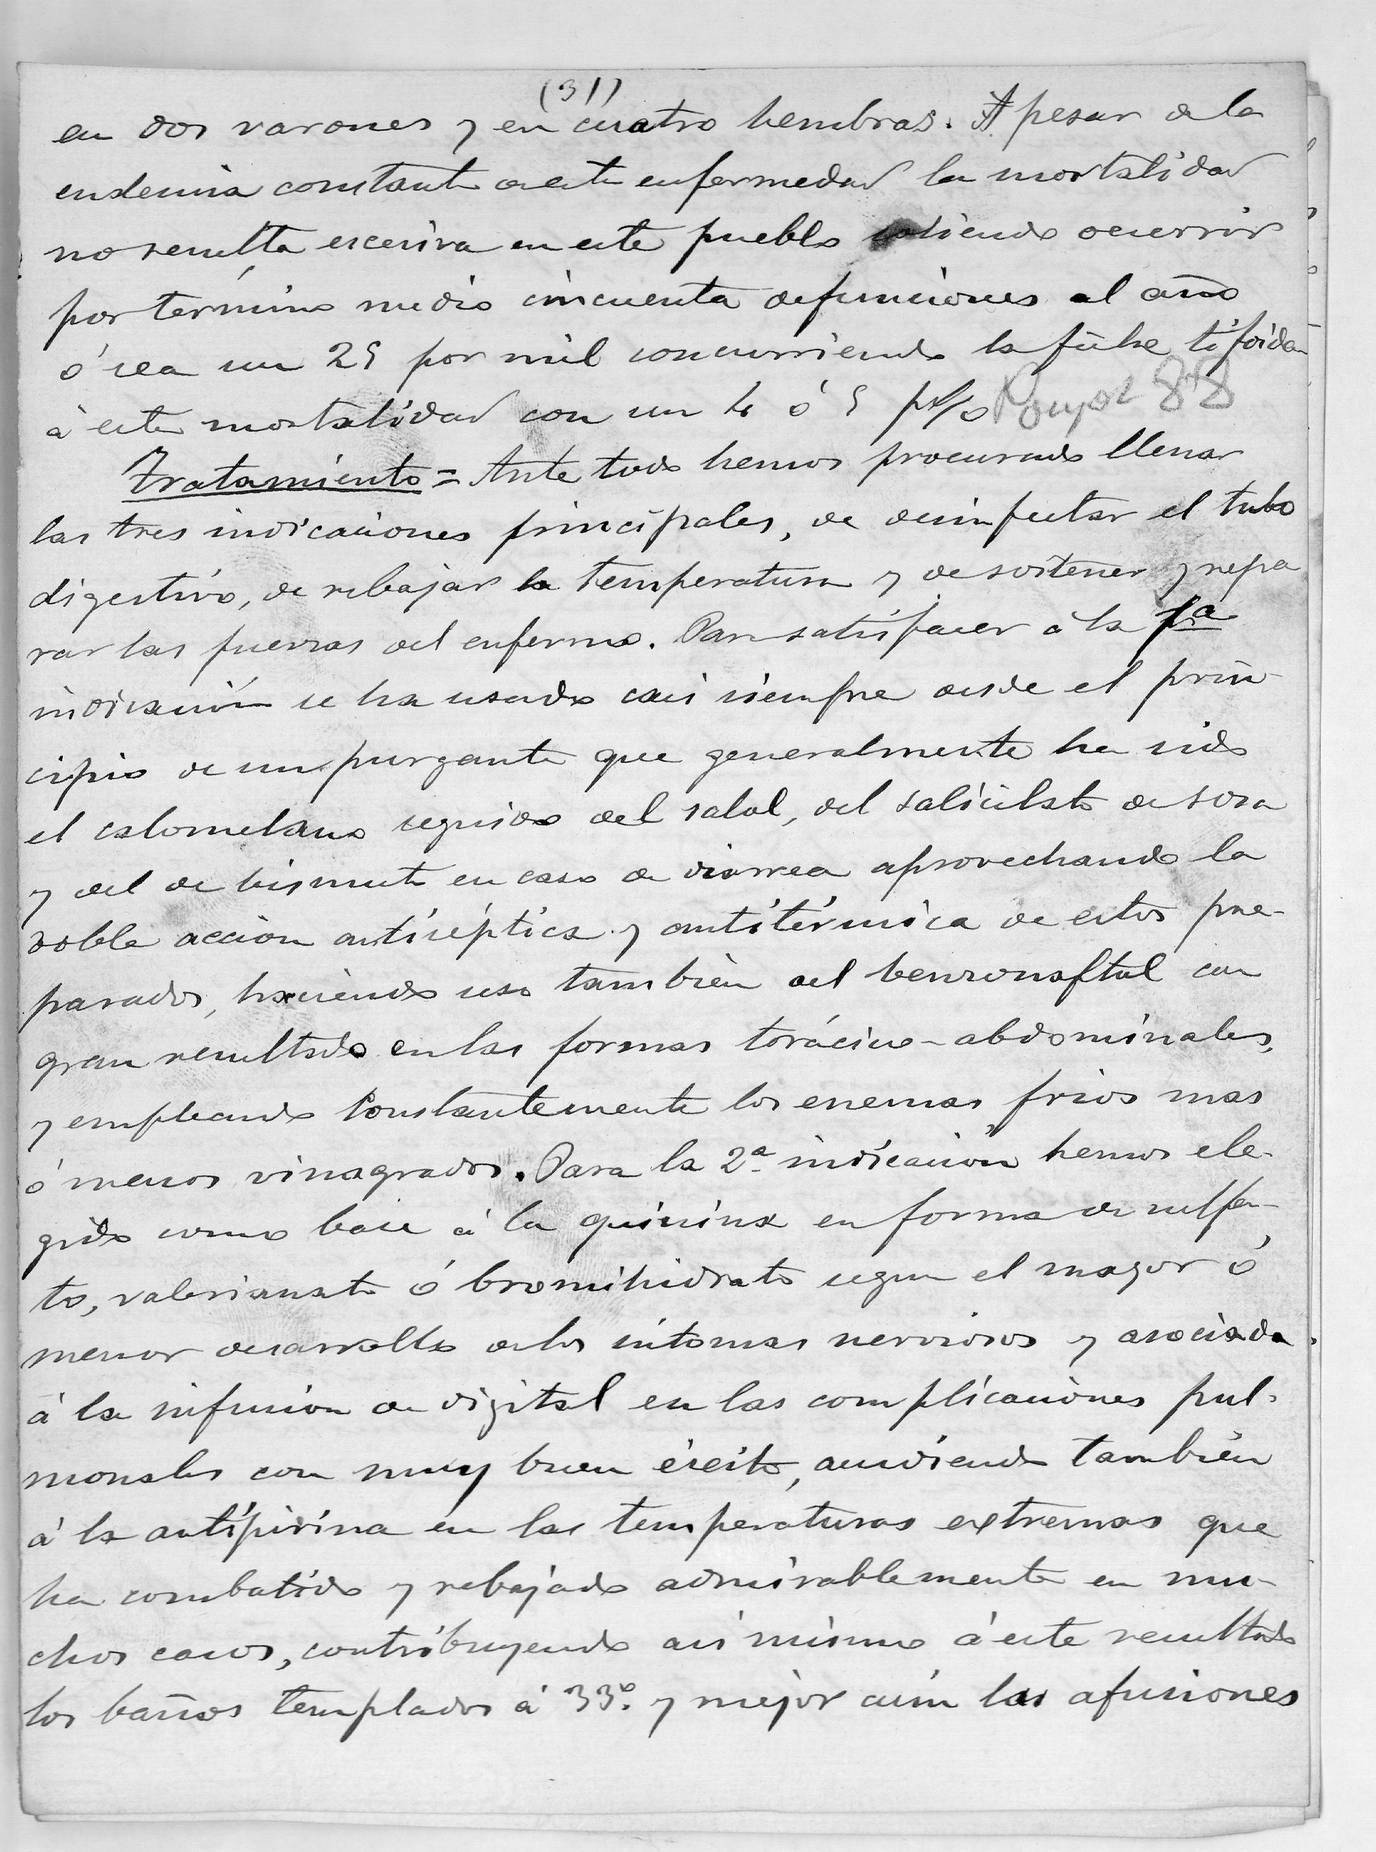 (31)
en dos varones y en cuatro hembras. A pesar de la
endemia constante de esta enfermedad la mortalidad
no resulta escesiva en este pueblo soliendo ocurrir
por término medio cincuenta defunciones al año
ó sea un 25 por mil concurriendo la fiebre tifoidea
á esta mortalidad con un 4 ó 5 p%
Tratamiento = Ante todo hemos procurado llenar
las tres indicaciones principales, de desinfectar el tubo
digestivo, de rebajar la temperatura y de sostener y repa
rar las fuerzas del enfermo. Para satisfacer á la 1ª
indicación se ha usado casi siempre desde el prin-
cipio de un purgante que generalmente ha sido
el calomelano seguido del salol, del salicilato de sosa
y del de bismuto en caso de diarrea aprovechando la
doble acción antiséptica y antitérmica de estos pre-
parados, haciendo uso también del benzonaftol con
gran resultado en las formas torácico-abdominales,
y empleando constantemente los enemas frios mas
ó menos vinagrados. Para la 2ª indicación hemos ele-
gido como base á la quinina en forma de sulfa-
to, valerianato ó bromihidrato segun el mayor ó
menor desarrollo de los síntomas nerviosos y asociada
á la infusion de digital en las complicaciones pul-
monales con muy buen éxcito, acudiendo también
á la antipirina en las temperaturas extremas que
ha combatido y rebajado admirablemente en mu-
chos casos, contribuyendo asi mismo á este resultado
los baños templados á 33º y mejor aún las afusiones